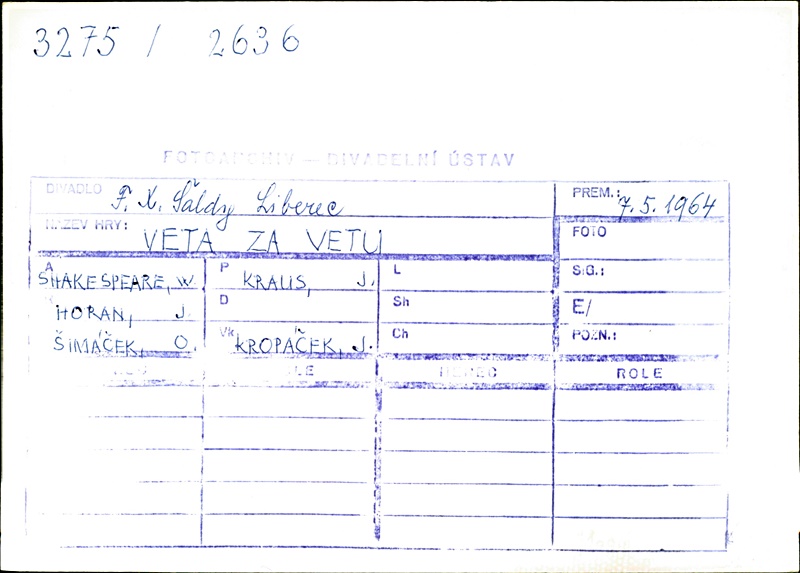 3275 / 2636
FOTOARCHIV — DIVADELNÍ ÚSTAV
DIVADLO F. X. Šaldy Liberec PREM.: 7. 5. 1964
NÁZEV HRY: VETA ZA VETU FOTO
A SHAKESPEARE, W. P KRAUS, J. L SIG.:
HORAN, J. D Sh E/
ŠIMÁČEK, O. Vk KROPÁČEK, J. Ch POZN.:
HEREC ROLE